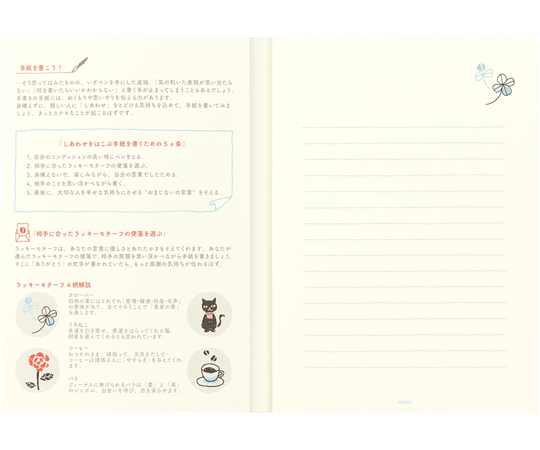 手紙を書こう!
…そう思ってはみたものの、いざペンを手にした途端、「気の利いた表現が思い当たら
ない」「何を書いたらいいかわからない」と書く手が止まってしまうこともあるでしょう。
手書きの手紙には、ぬくもりや思いやりを伝える力があります。
身構えずに、親しい人に「しあわせ」をとどける気持ちを込めて、手紙を書いてみま
しょう。きっとステキなことが起こるはずです。
「しあわせをはこぶ手紙を書くための5ヶ条」
1. 自分のコンディションの良い時にペンをとる。
2. 相手に合ったラッキーモチーフの便箋を選ぶ。
3. 身構えないで、楽しみながら、自分の言葉でしたためる。
4. 相手のことを思い浮かべながら書く。
5. 最後に、大切な人を幸せな気持ちにさせる"おまじないの言葉"をそえる。
「相手に合ったラッキーモチーフの便箋を選ぶ」
ラッキーモチーフは、あなたの言葉に優しさとあたたかさをそえてくれます。あなたが
選んだラッキーモチーフの便箋で、相手の笑顔を思い浮かべながら手紙を書きましょう。
そこに「ありがとう」の文字が書かれていたら、もっと感謝の気持ちが伝わるはず。
ラッキーモチーフ4柄解説
クローバー
四枚の葉にはそれぞれ「愛情・健康・財産・名声」
の意味があり、全てそろうことで「真実の愛」
を表します。
くろねこ
幸運を引き寄せ、悪運をはらってくれる猫。
財産を運んでくれるとも言われています。
コーヒー
おつかれさま、頑張って、元気をだして…
コーヒーは頑張る人に「やすらぎ」を与えてくれ
ます。
バラ
ヴィーナスに捧げられるバラは「愛」と「美」
のシンボル。出会いを呼び、恋を実らせます。